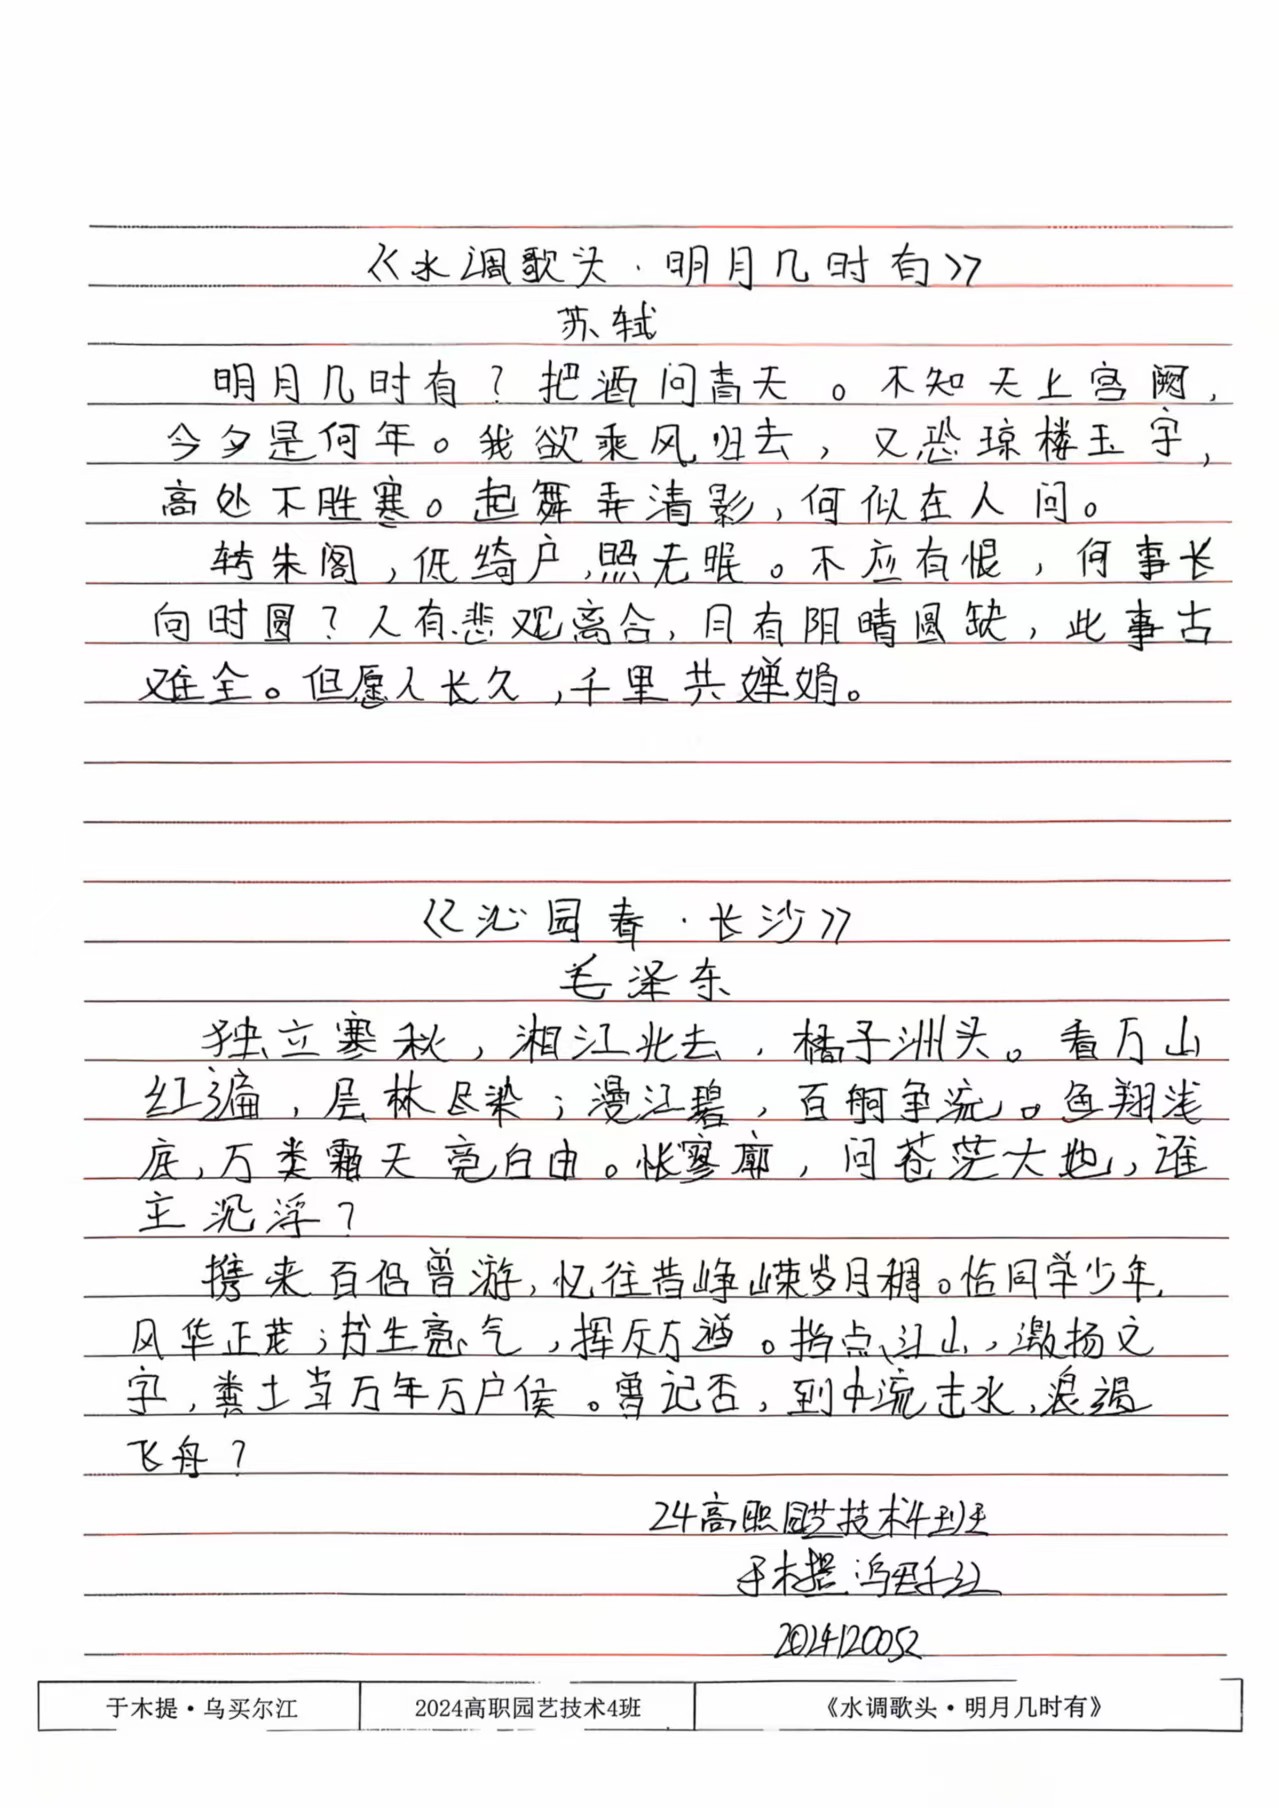 《水调歌头·明月几时有》
苏轼
明月几时有？把酒问青天。不知天上宫阙，
今夕是何年。我欲乘风归去，又恐琼楼玉宇，
高处不胜寒。起舞弄清影，何似在人间。
转朱阁，低绮户，照无眠。不应有恨，何事长
向时圆？人有悲观离合，月有阴晴圆缺，此事古
难全。但愿人长久，千里共婵娟。
《沁园春·长沙》
毛泽东
独立寒秋，湘江北去，橘子洲头。看万山
红遍，层林尽染；漫江碧，百舸争流。鱼翔浅
底，万类霜天竞自由。怅寥廓，问苍茫大地，谁
主沉浮？
携来百侣曾游，忆往昔峥嵘岁月稠。恰同学少年，
风华正茂；书生意气，挥斥方遒。指点江山，激扬文
字，粪土当万年万户侯。曾记否，到中流击水，浪遏
飞舟？
24高职园艺技术4班
于木提·乌买尔江
2024120052
于木提·乌买尔江 2024高职园艺技术4班 《水调歌头·明月几时有》